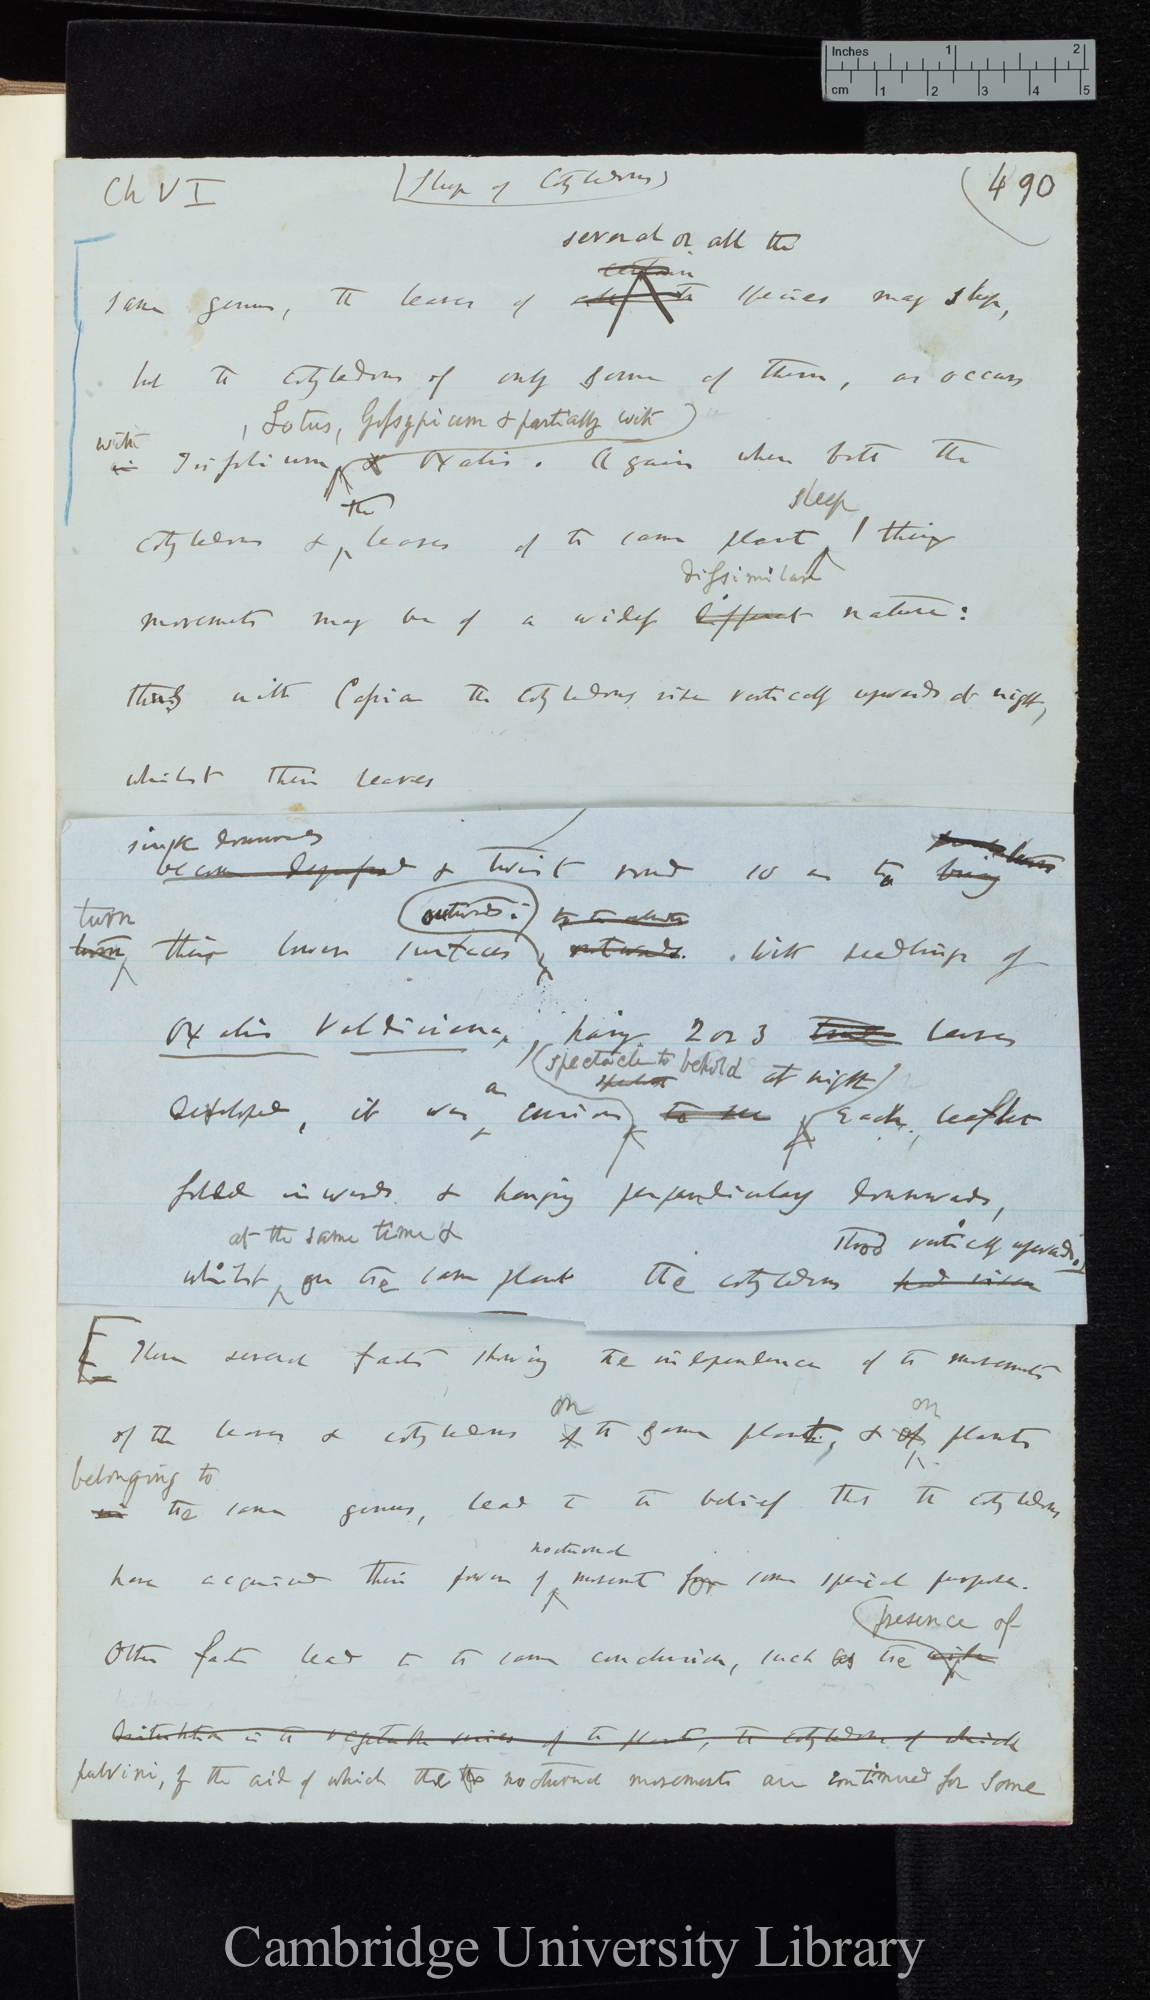 Inches 1 2
cm 1 2 3 4 5
Ch VI (Sleep of Cotyledons) (490
several or all the
certain
same genus, the leaves of all the species may sleep,
but the cotyledons of only some of them, as occurs
, Lotus, Gossypium & partially with
with
in Trifolium & Oxalis. Again when both the
the sleep
cotyledons & leaves of the same plant , their
dissimilar
movements may be of a widely different nature:
thus with Cassia the cotyledons rise vertically upwards at night,
whilst their leaves
single downwards
become depressed & twist round so as to bring
turn outwards:
turn their lower surfaces outwards. With seedlings of
Oxalis Valdiviana, having 2 or 3 leaves
spectacle to behold at night
a
developed, it was curious to see Each leaflet
folded inwards & hanging perpendicularly downwards,
at the same time & stood vertically upwards.
whilst on the same plant the cotyledons had risen
[These several facts showing the independence of the movements
on on
of the leaves & cotyledons of the same plant, & of plants
belonging to
in the same genus, lead to the belief that the cotyledons
nocturnal
have acquired their power of movement for some special purpose.
presence of
Other facts lead to the same conclusion, such as the
distribution in the vegetable series of the plants, the cotyledons of which
pulvini, by the aid of which the nocturnal movements are continued for some
Cambridge University Library